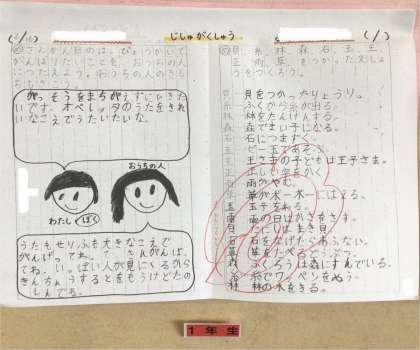 じしゅがくしゅう
さんかん日のはっぴょうかいで
がんばりたいことを、おうちの人
につたえよう。おうちの人のきも
がっそうをまちがえずにひきた
いです。オペレッタのうたをきれ
いなこえでうたいたいな。
おうちの人
わたし
ぼく
うたもせりふも大きなこえで
がんばってね。
てね。
貝、糸、林、森、石、玉、王、
正、雨、草、をつかったえしょ
うをつくろう。
貝 貝をつかったりょうり。
糸 ふくから糸が出る。
林 林をたんけんする。
森 森でまい子になる。
石 石につまずく。
玉 ビー玉であそぶ。
王 王さまの子どもは王子さま。
正 正しい字をかく
雨 雨がやむ。
草 草が一本一本にはえる。
玉 玉子をわる。
雨 雨の日はかさをさす。
貝 たにしはまき貝。
石 石をなげたらあぶない。
森 ふくろうは森にすんでいる。
糸 糸でワッペンをぬう。
林 林の木をきる。
1年生